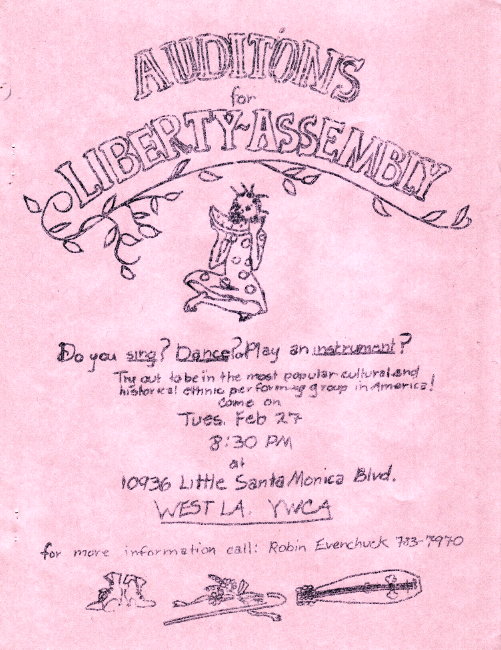 AUDITÓNS
for
LIBERTY-ASSEMBLY
Do you sing? Dance? Play an instrument?
Try out to be in the most popular cultural and
historical ethnic performing group in America!
Come on
Tues. Feb 27
8:30 PM
at
10936 Little Santa Monica Blvd.
WEST L.A. YWCA
for more information call: Robin Evenchuck 793-7970